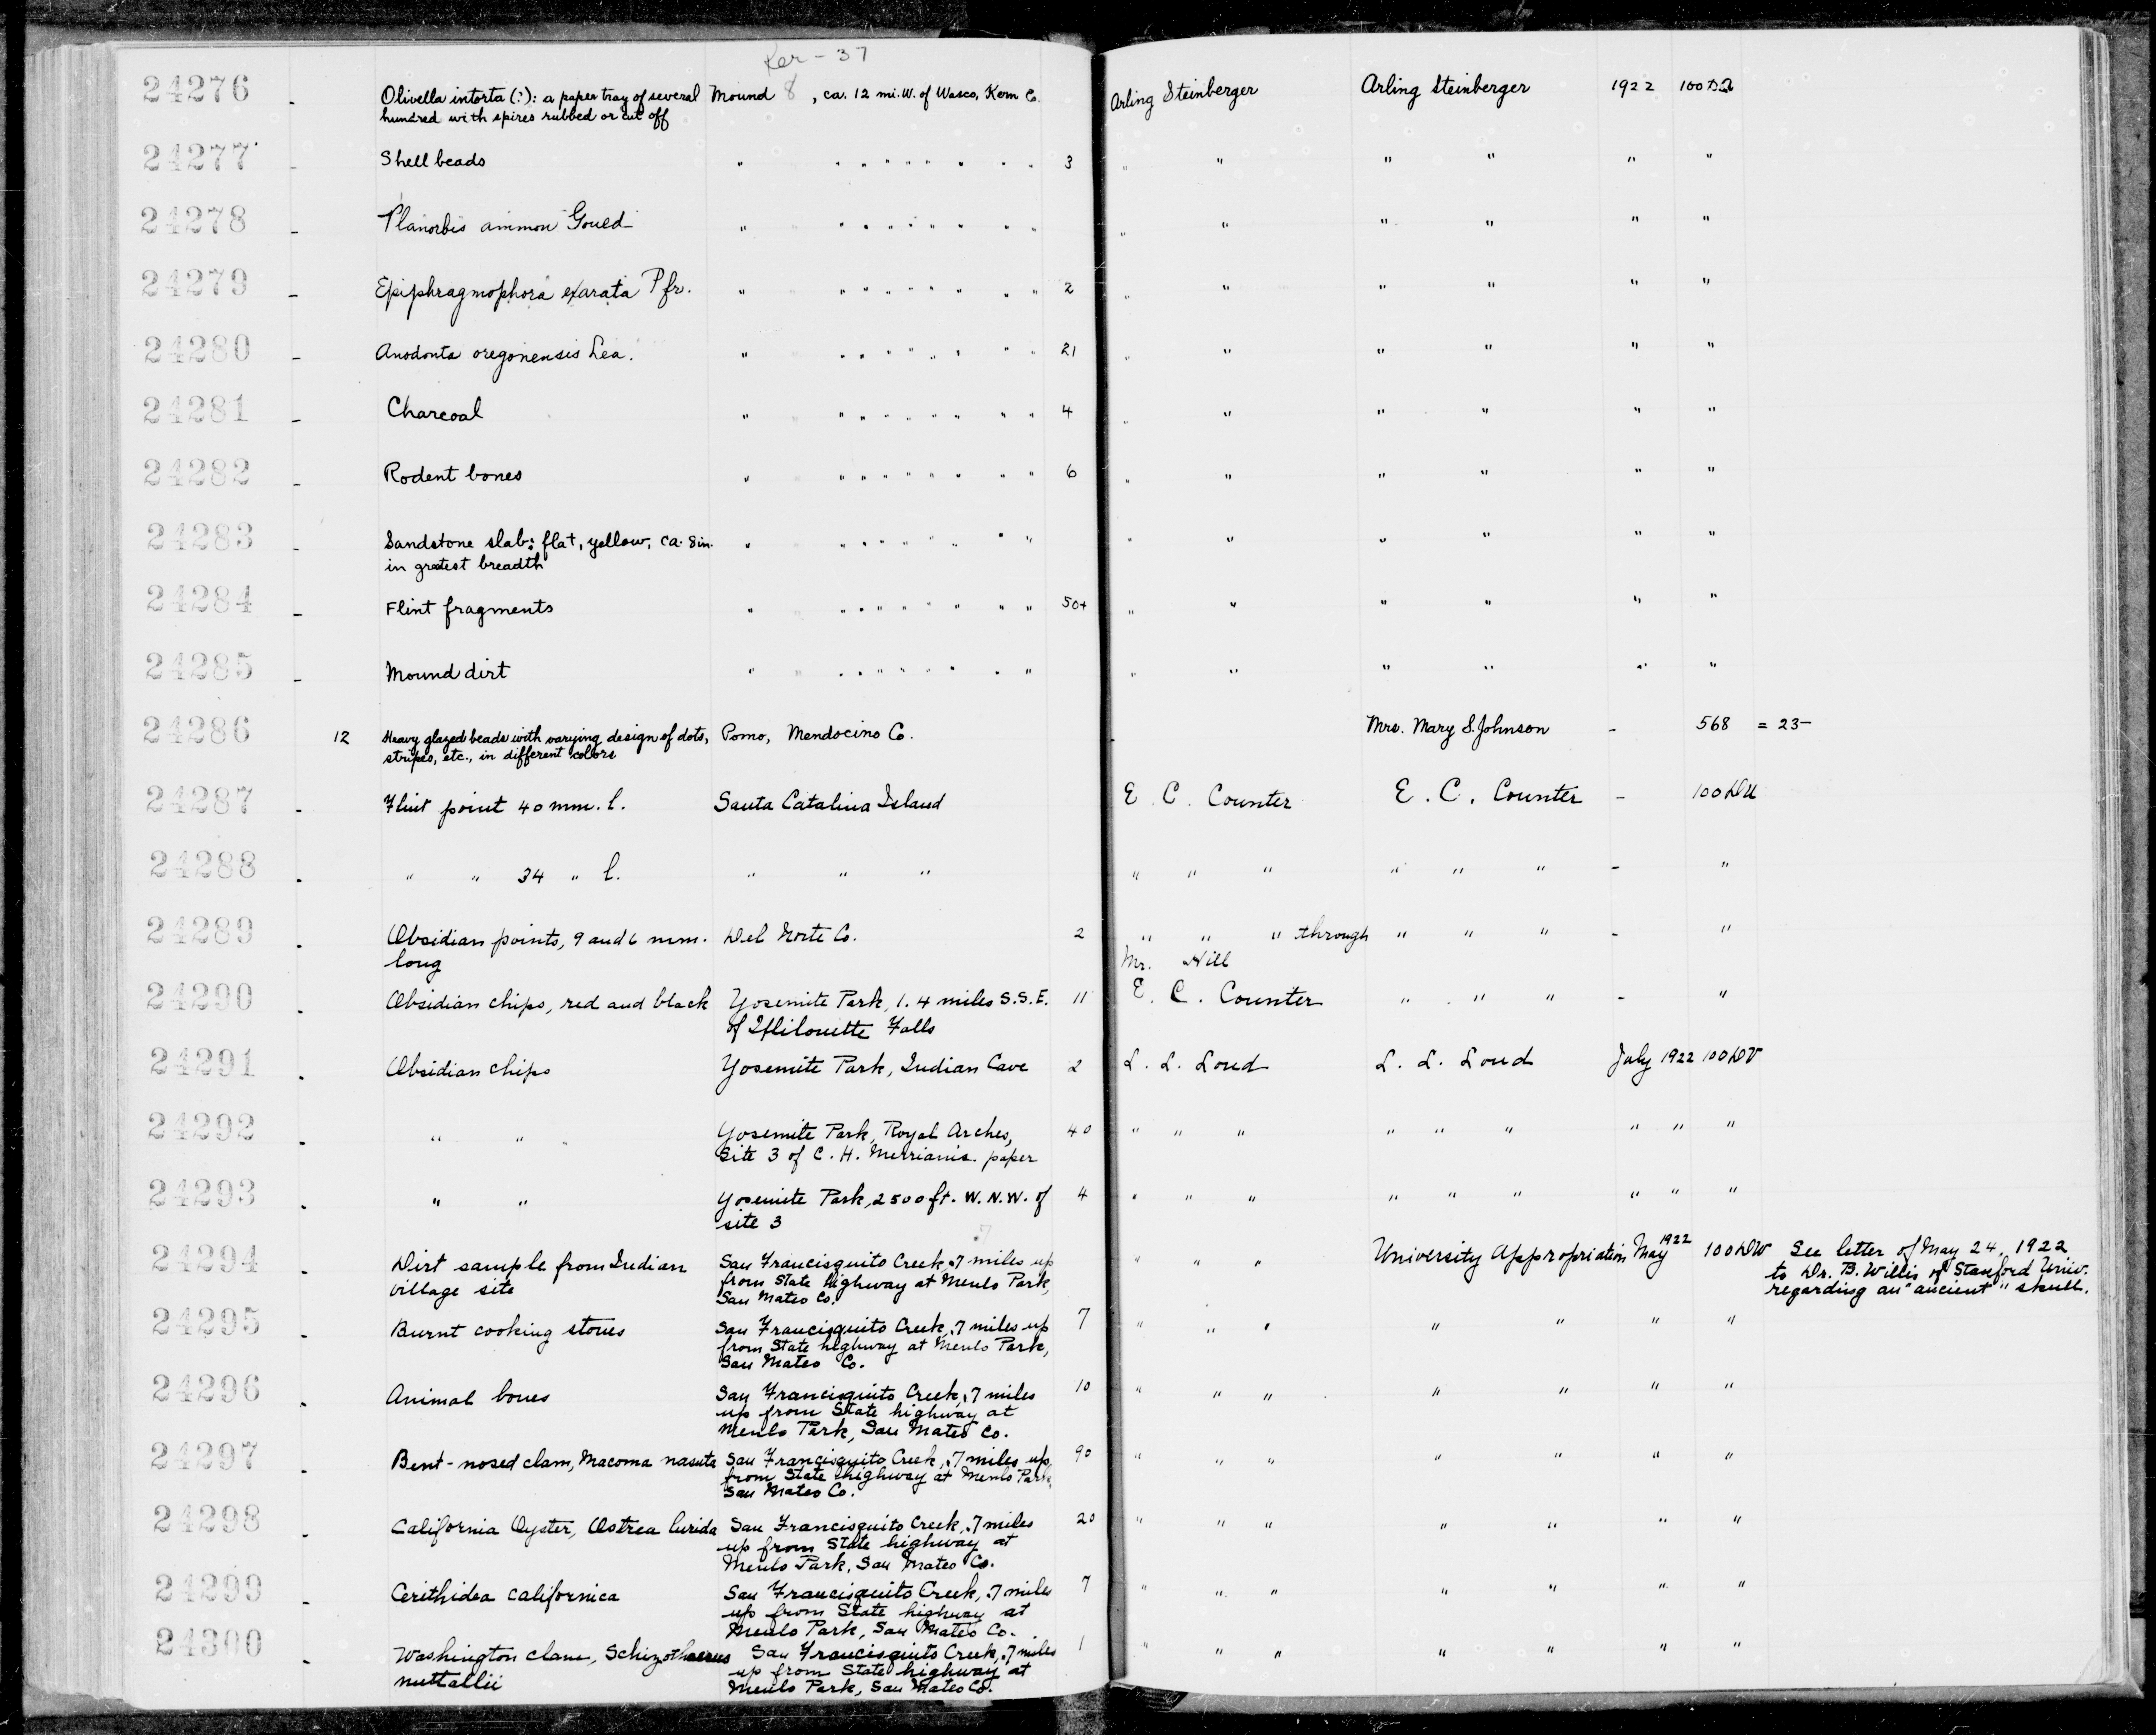 Ker-37
24276 - Olivella intorta (?): a paper tray of several Mound 8, ca. 12 mi. W. of Wasco, Kern Co. Arling Steinberger Arling Steinberger 1922 100DΩ
hundred with spires rubbed or cut off
24277 - Shell beads " " " " " " " " " 3 " " " " " "
24278 - Planorbis ammon Gould " " " " " " " " " " " " " " "
24279 - Epiphragmophora exarata Pfr. " " " " " " " " " 2 " " " " " "
24280 - Anodonta oregonensis Lea. " " " " " " " " " 21 " " " " " "
24281 - Charcoal " " " " " " " " " 4 " " " " " "
24282 - Rodent bones " " " " " " " " " 6 " " " " " "
24283 - Sandstone slab: flat, yellow, ca. 8in. " " " " " " " " " " " " " " "
in gratest breadth
24284 - Flint fragments " " " " " " " " " 50+ " " " " " "
24285 - Mound dirt " " " " " " " " " " " " " " "
24286 12 Heavy glazed beads with varying design of dots, Pomo, Mendocino Co. - Mrs. Mary S. Johnson - 568 = 23-
stripes, etc., in different colors
24287 - Flint point 40 mm. l. Santa Catalina Island E. C. Counter E. C. Counter - 100DU
24288 - " " 34 " l. " " " " " " " " " - "
24289 - Obsidian points, 9 and 6 mm. Del Norte Co. 2 " " " through " " " - "
long Mr. Hill
24290 - Obsidian chips, red and black Yosemite Park, 1.4 miles S.S.E. 11 E. C. Counter " " " - "
of Illilouette Falls
24291 - Obsidian chips Yosemite Park, Indian Cave 2 L. L. Loud L. L. Loud July 1922 100DV
24292 - " " Yosemite Park, Royal Arches, 40 " " " " " " " " "
Site 3 of C. H. Merriam's paper
24293 - " " Yosemite Park, 2500 ft. W. N. W. of 4 " " " " " " " " "
site 3
24294 - Dirt sample from Indian San Francisquito Creek, .7 miles up " " " University Appropriation May 1922 100DW See letter of May 24, 1922
village site from State highway at Menlo Park, to Dr. B. Willis of Stanford Univ.
San Mateo Co. regarding an "ancient" skull.
24295 - Burnt cooking stones San Francisquito Creek, .7 miles up 7 " " " " " " "
from State highway at Menlo Park,
San Mateo Co.
24296 - Animal bones San Francisquito Creek, .7 miles 10 " " " " " " "
up from State highway at
Menlo Park, San Mateo Co.
24297 - Bent-nosed clam, Macoma nasuta San Francisquito Creek, .7 miles up 90 " " " " " " "
from State highway at Menlo Park,
San Mateo Co.
24298 - California Oyster, Ostrea lurida San Francisquito Creek, .7 miles 20 " " " " " " "
up from State highway at
Menlo Park, San Mateo Co.
24299 - Cerithidea californica San Francisquito Creek, .7 miles 7 " " " " " " "
up from State highway at
Menlo Park, San Mateo Co.
24300 - Washington clam, Schizothaerus San Francisquito Creek, .7 miles 1 " " " " " " "
nuttallii up from State highway at
Menlo Park, San Mateo Co.